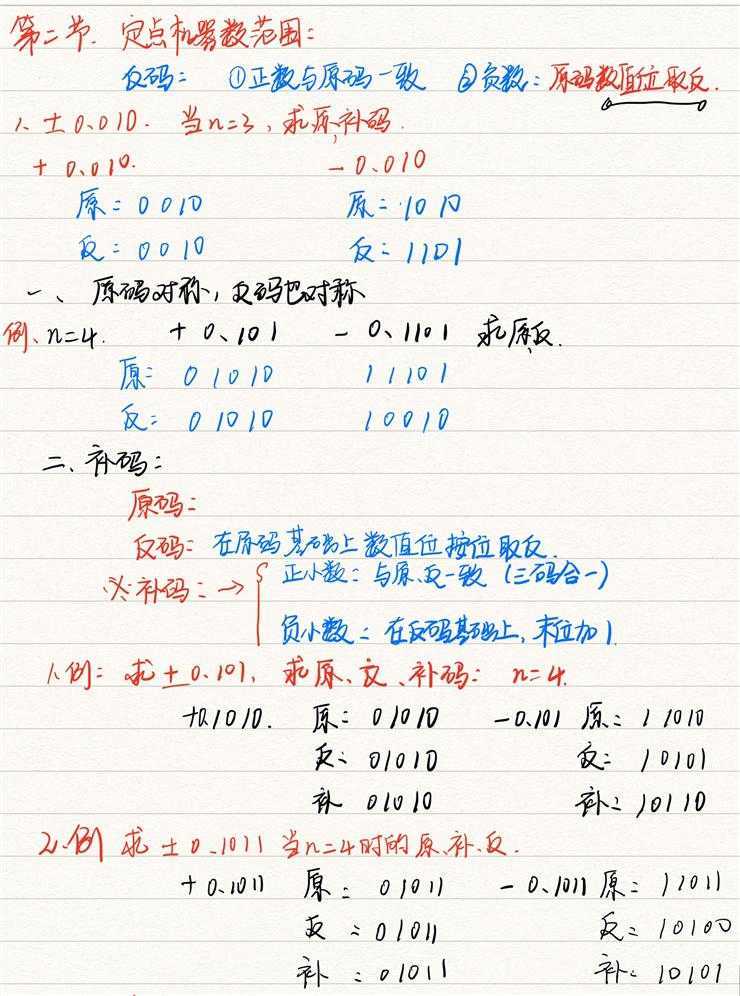 第二节. 定点机器数范围:
反码: ①正数与原码一致 ②负数: 原码数值位取反.
1. ± 0.010. 当n=3, 求原、补码.
+ 0.010. - 0.010
原: 0010 原: 1010
反: 0010 反: 1101
一、原码对称, 反码也对称
例、n=4. + 0.101 - 0.1101 求原、反.
原: 01010 11101
反: 01010 10010
二、补码:
原码:
反码: 在原码基础上数值位按位取反.
※补码: → { 正小数: 与原、反一致 (三码合一)
负小数: 在反码基础上, 末位加1.
1.例: 求±0.101, 求原、反、补码: n=4.
+0.1010. 原: 01010 -0.101 原: 11010
反: 01010 反: 10101
补 01010 补: 10110
2.例 求 ± 0.1011 当n=4时的原、补、反.
+ 0.1011 原: 01011 - 0.1011 原: 11011
反: 01011 反: 10100
补: 01011 补: 10101